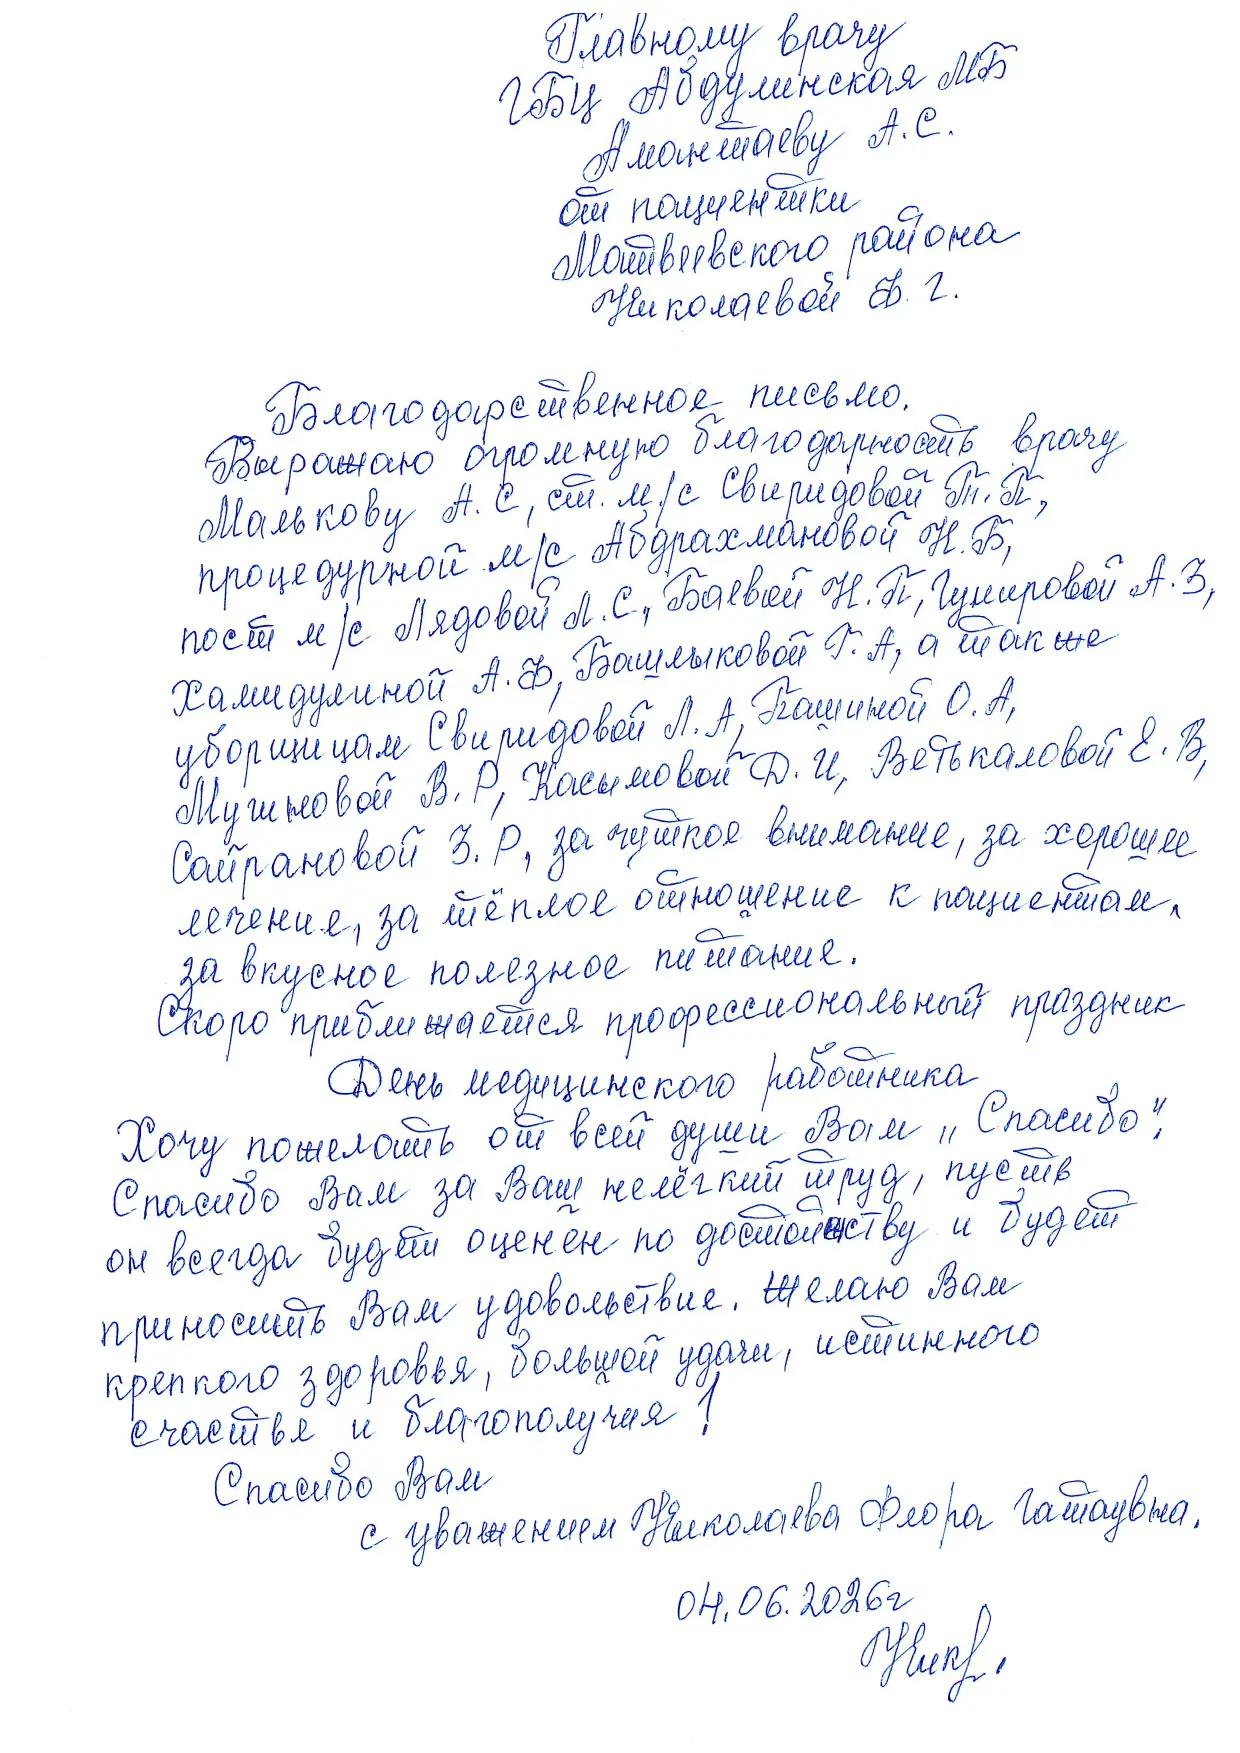 Главному врачу
ГБЦ Абдулинская МБ
Амантаеву А.С.
от пациентки
Матвеевского района
Николаевой Ф.Г.
Благодарственное письмо.
Выражаю огромную благодарность врачу
Малькову А.С, ст. м/с Свиридовой Т.П,
процедурной м/с Абдрахмановой Н.Б,
пост м/с Лядовой Л.С, Баевой Н.П, Гумировой А.З,
Хамидулиной А.Ф, Башлыковой Г.А, а также
уборщицам Свиридовой Л.А, Пашиной О.А,
Мугиновой В.Р, Касымовой Д.И, Ветькаловой Е.В,
Сайрановой З.Р, за чуткое внимание, за хорошее
лечение, за тёплое отношение к пациентам,
за вкусное полезное питание.
Скоро приближается профессиональный праздник
День медицинского работника
Хочу пожелать от всей души Вам „Спасибо".
Спасибо Вам за Ваш нелёгкий труд, пусть
он всегда будет оценён по достоинству и будет
приносить Вам удовольствие. Желаю Вам
крепкого здоровья, большой удачи, истинного
счастья и благополучия!
Спасибо Вам
с уважением Николаева Флора Гатаувна.
04.06.2026г